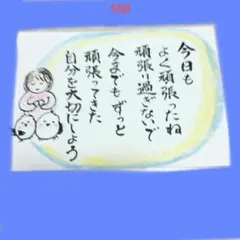 今日も
よく頑張ったね
頑張り過ぎないで
今までもずっと
頑張ってきた
自分を大切にしよう